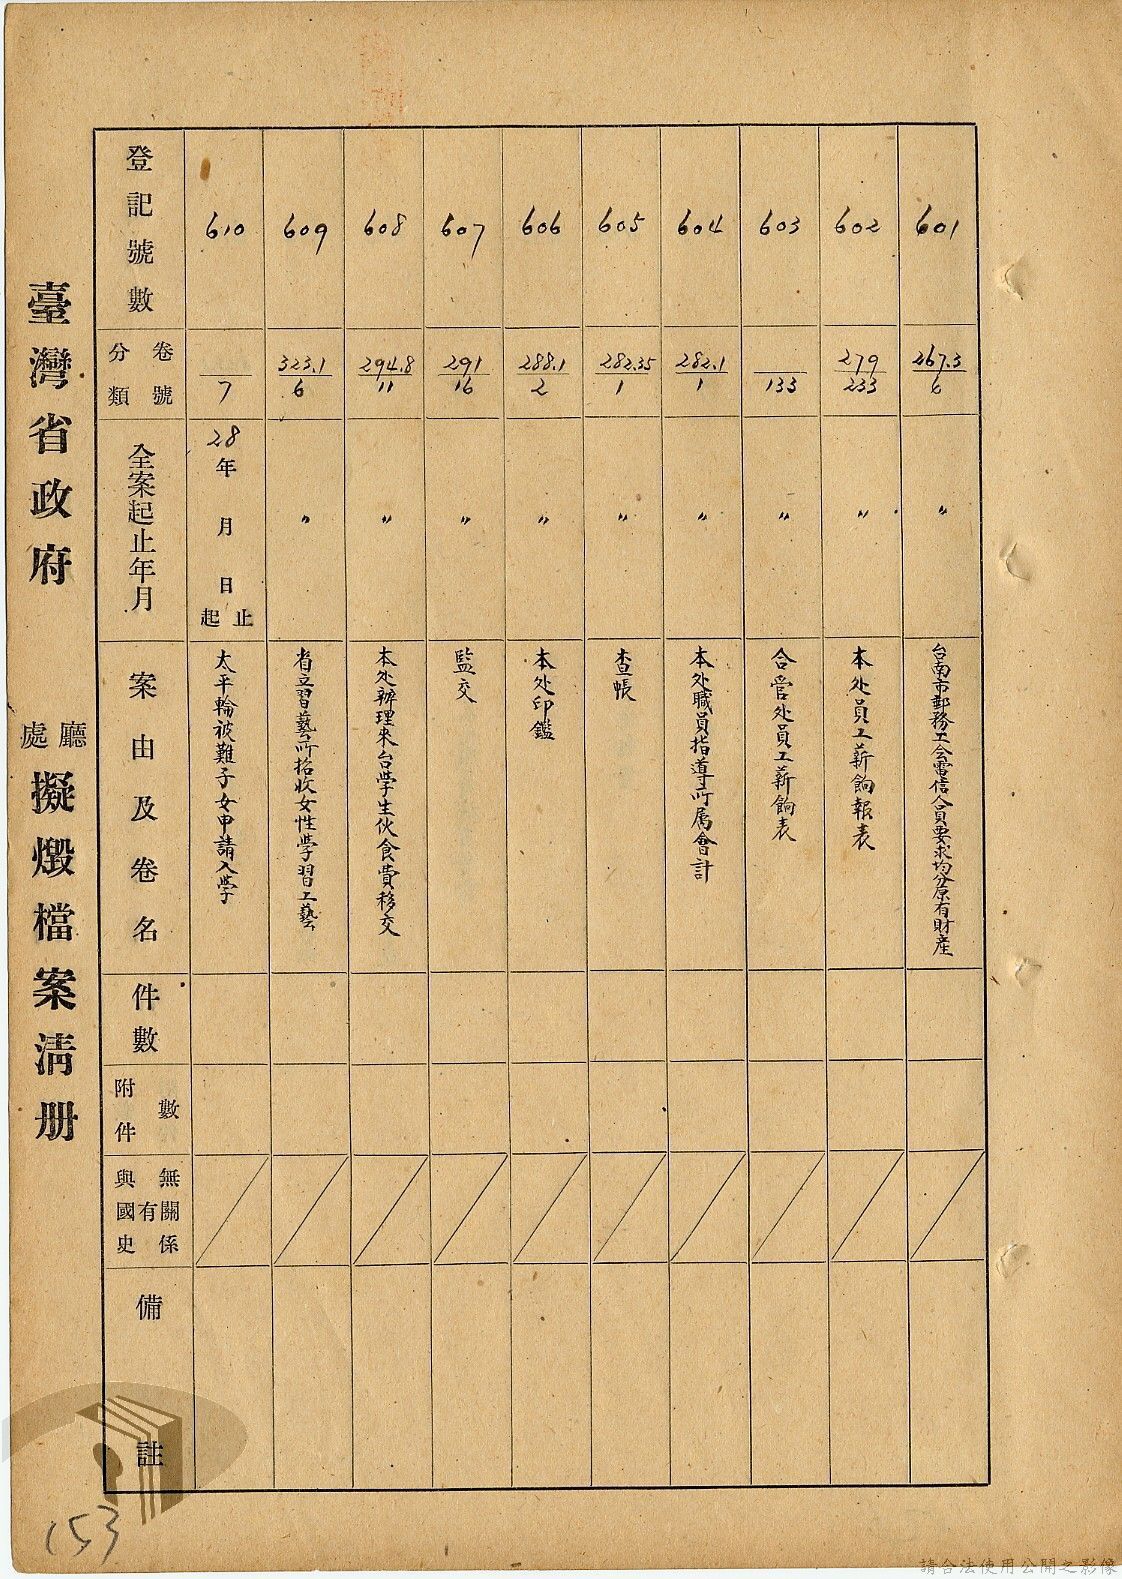 601
267.3
6
〃
台南市郵務工会電信人員要求均分原有財產
602
279
233
〃
本处員工薪餉報表
603
133
〃
合营处員工薪餉表
604
282.1
1
〃
本处職員指導所属會計
605
282.35
1
〃
查帳
606
288.1
2
〃
本处印鑑
607
291
16
〃
監交
608
294.8
11
〃
本处辦理來台學生伙食費移交
609
323.1
6
〃
省立習藝所招收女性學習工藝
610
7
28年 月 日起止
太平輪被難子女申請入學
登記號數
分類卷號
全案起止年月
案由及卷名
件數
附件數
與國史有無關係
備註
臺灣省政府
廳處
擬燬檔案清册
153
請合法使用公開之影像